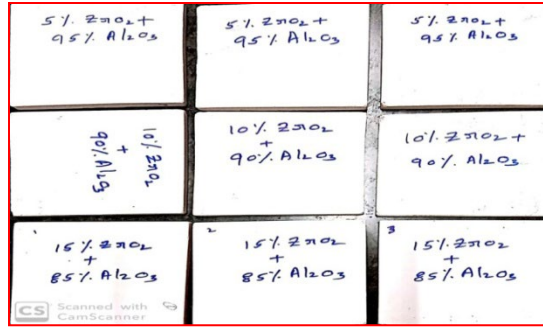 5% ZrO2 +
95% Al2O3
5% ZrO2 +
95% Al2O3
5% ZrO2 +
95% Al2O3
10% ZrO2
+
90% Al2O3
10% ZrO2
+
90% Al2O3
10% ZrO2 +
90% Al2O3
15% ZrO2
+
85% Al2O3
2
15% ZrO2
+
85% Al2O3
3
15% ZrO2
+
85% Al2O3
CS Scanned with
CamScanner